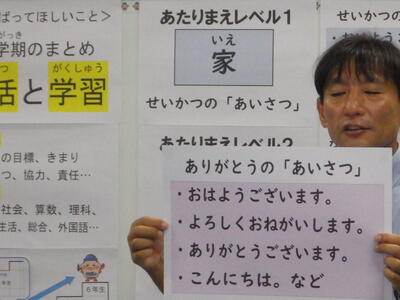 ばってほしいこと>
がっき
学期のまとめ
がくしゅう
活と学習
の目標、きまり
つ、協力、責任…
社会、算数、理科、
生活、総合、外国語…
6年生
あたりまえレベル1
いえ
家
せいかつの「あいさつ」
あたりまえレベル2
せいかつの「あい
・おはようこ
ありがとうの「あいさつ」
・おはようございます。
・よろしくおねがいします。
・ありがとうございます。
・こんにちは。など